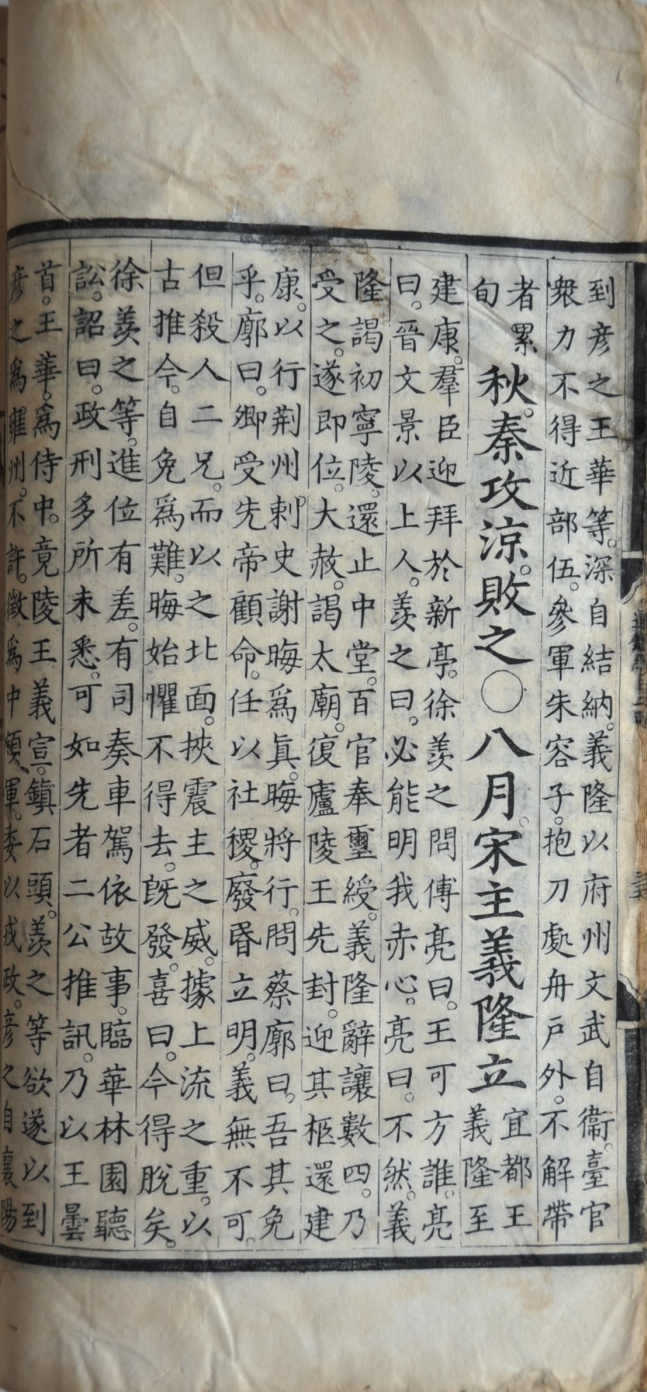 到彥之王華等。深自結納。義隆以府州文武自衞。臺官
衆力不得近部伍。參軍朱容子。抱刀處舟戶外。不解帶
者累
旬
秋。秦攻涼。敗之〇八月。宋主義隆立
宜都王
義隆至
建康。羣臣迎拜於新亭。徐羨之問傅亮曰。王可方誰。亮
曰。晉文景以上人。羨之曰。必能明我赤心。亮曰。不然。義
隆謁初寧陵。還止中堂。百官奉璽綬。義隆辭讓數四。乃
受之。遂即位。大赦。謁太廟。復廬陵王先封。迎其柩還建
康。以行荆州刺史謝晦爲眞。晦將行。問蔡廓曰。吾其免
乎。廓曰。卿受先帝顧命。任以社稷。廢昏立明。義無不可。
但殺人二兄。而以之北面。挾震主之威。據上流之重。以
古推今。自免爲難。晦始懼不得去。旣發。喜曰。今得脫矣。
徐羨之等。進位有差。有司奏車駕依故事。臨華林園聽
訟。詔曰。政刑多所未悉。可如先者二公推訊。乃以王曇
首。王華。爲侍中。竟陵王義宣。鎭石頭。羨之等欲遂以到
彥之爲雍州。不許。徵爲中領軍。委以戎政。彥之自襄陽